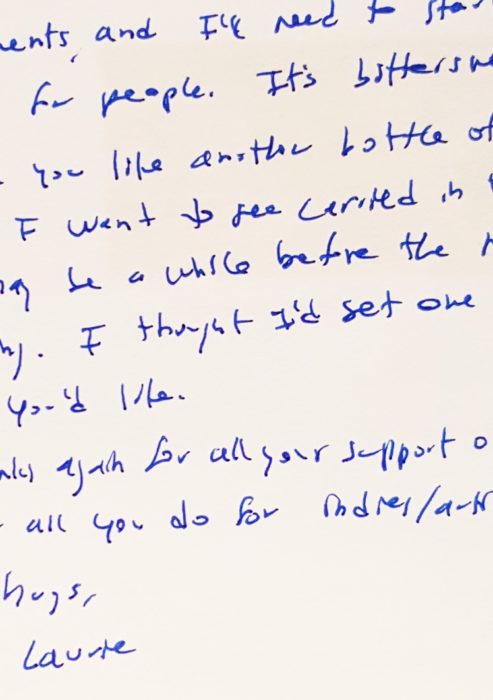 ents, and I'll need to sta
for people. It's bittersw
you like another bottle of
I want to see carried in
be a while before the
. I thought I'd set one
you'd like.
again for all your support o
all you do for indies/
hugs,
Laurie